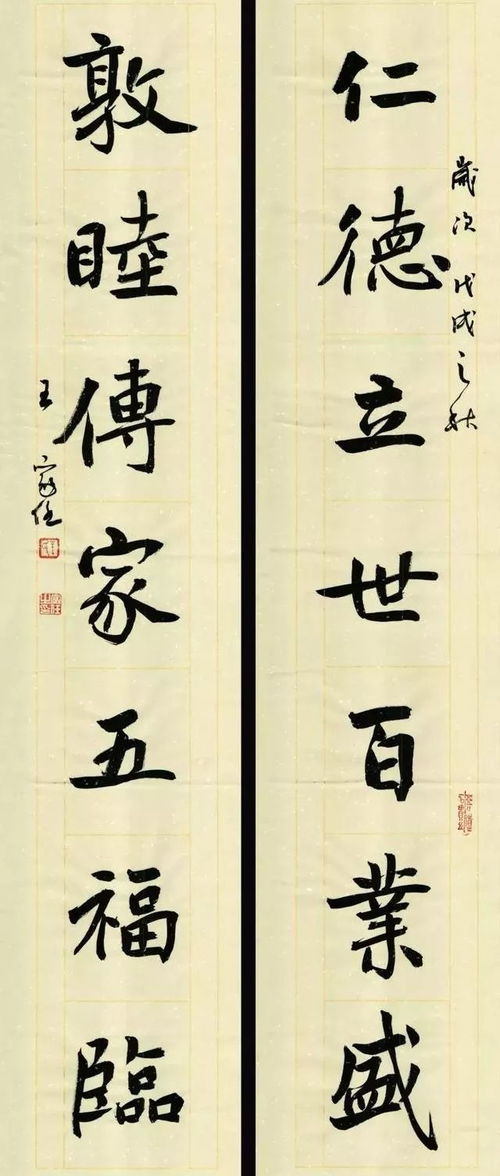 歲次戊戌之秋
仁德立世百業盛
敦睦傳家五福臨
王家任